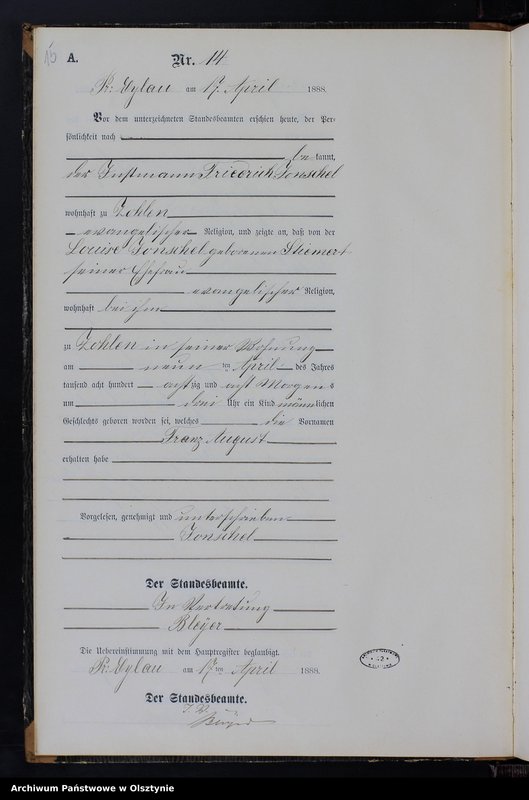 15
A.
Nr. 14
Pr: Eylau am 17. April 1888.
Vor dem unterzeichneten Standesbeamten erschien heute, der Per-
sönlichkeit nach
be kannt,
der Instmann Friedrich Jonschel
wohnhaft zu Zohlen
evangelischer Religion, und zeigte an, daß von der
Louise Jonschel geborenen Stiemert
seiner Ehefrau
evangelischer Religion,
wohnhaft bei ihm
zu Zohlen in seiner Wohnung
am neun ten April des Jahres
tausend acht hundert achtzig und acht Morgens
um drei Uhr ein Kind männlichen
Geschlechts geboren worden sei, welches die Vornamen
Franz August
erhalten habe
Vorgelesen, genehmigt und unterschrieben
Jonschel
Der Standesbeamte.
In Vertretung
Bleÿer
Die Uebereinstimmung mit dem Hauptregister beglaubigt.
Pr: Eylau am 17ten April 1888.
Der Standesbeamte.
I. V.
Bleÿer
Archiwum Państwowe w Olsztynie